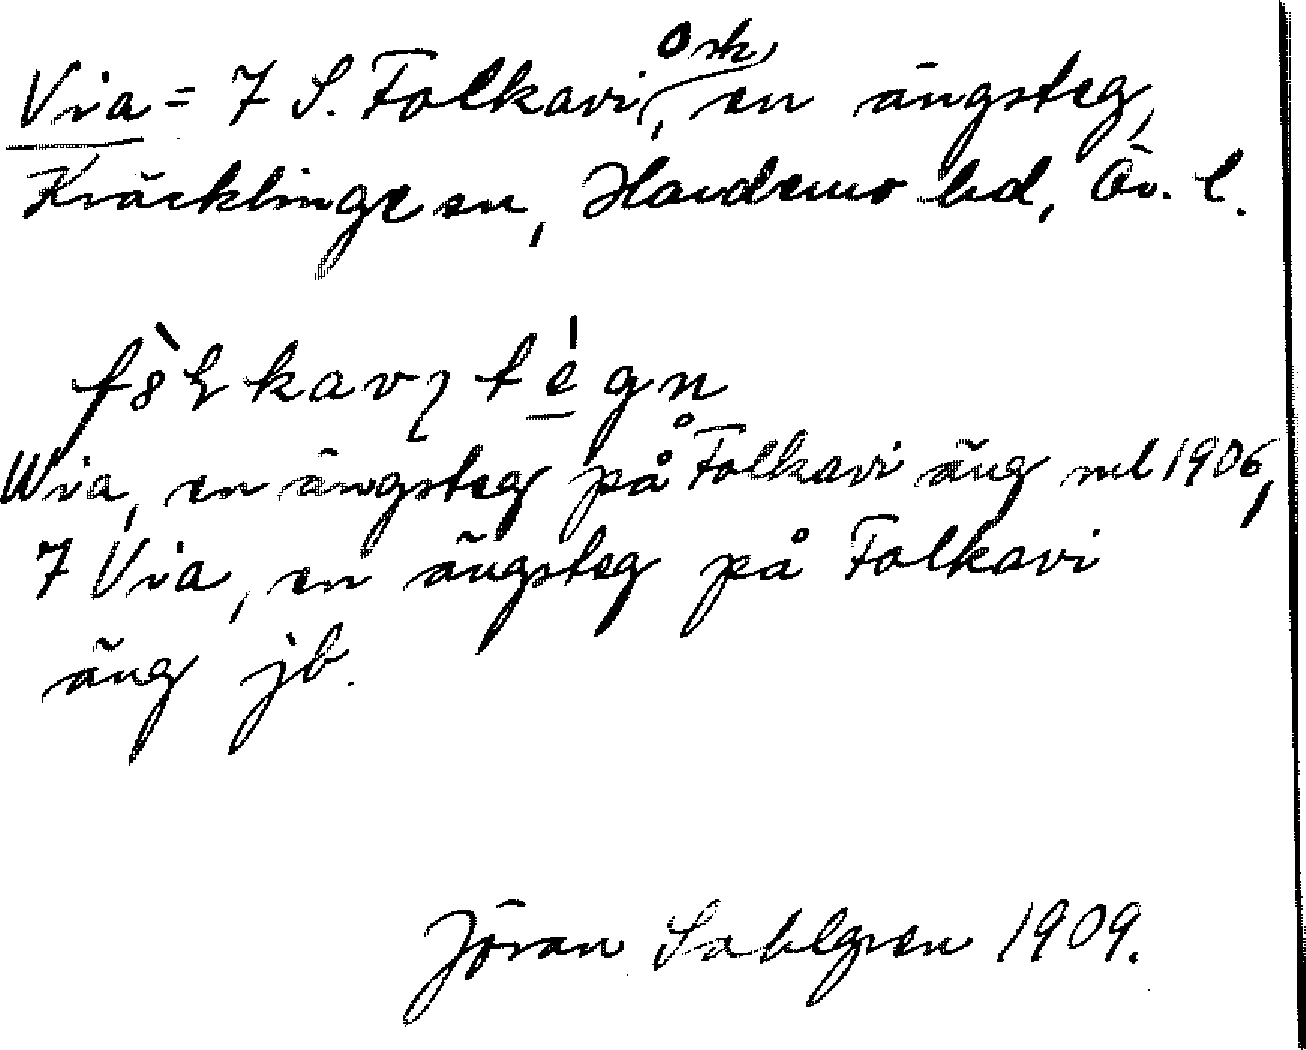 Via = 7 S. Folkavi, osk en ängsteg,
Kräcklinge sn, Hardemo hd, Ör. l.
tégn
Wia, en ängsteg på Folkavi äng ml 1906,
7 Via, en ängsteg på Folkavi
äng jb.
Jöran Sahlgren 1909.